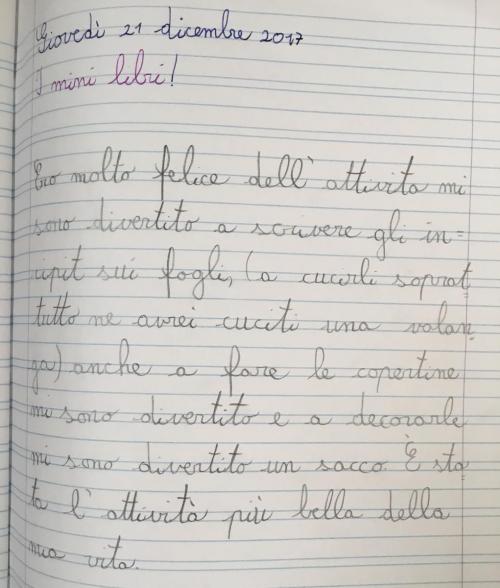 Giovedì 21 dicembre 2017
I mini libri!
Ero molto felice dell'attivita mi
sono divertito a scrivere gli in=
cipit sui fogli, (a cucirli soprat=
tutto ne avrei cuciti una valan=
ga) anche a fare le copertine
mi sono divertito e a decorarle
mi sono divertito un sacco. È sta
ta l'attività più bella della
mia vita.